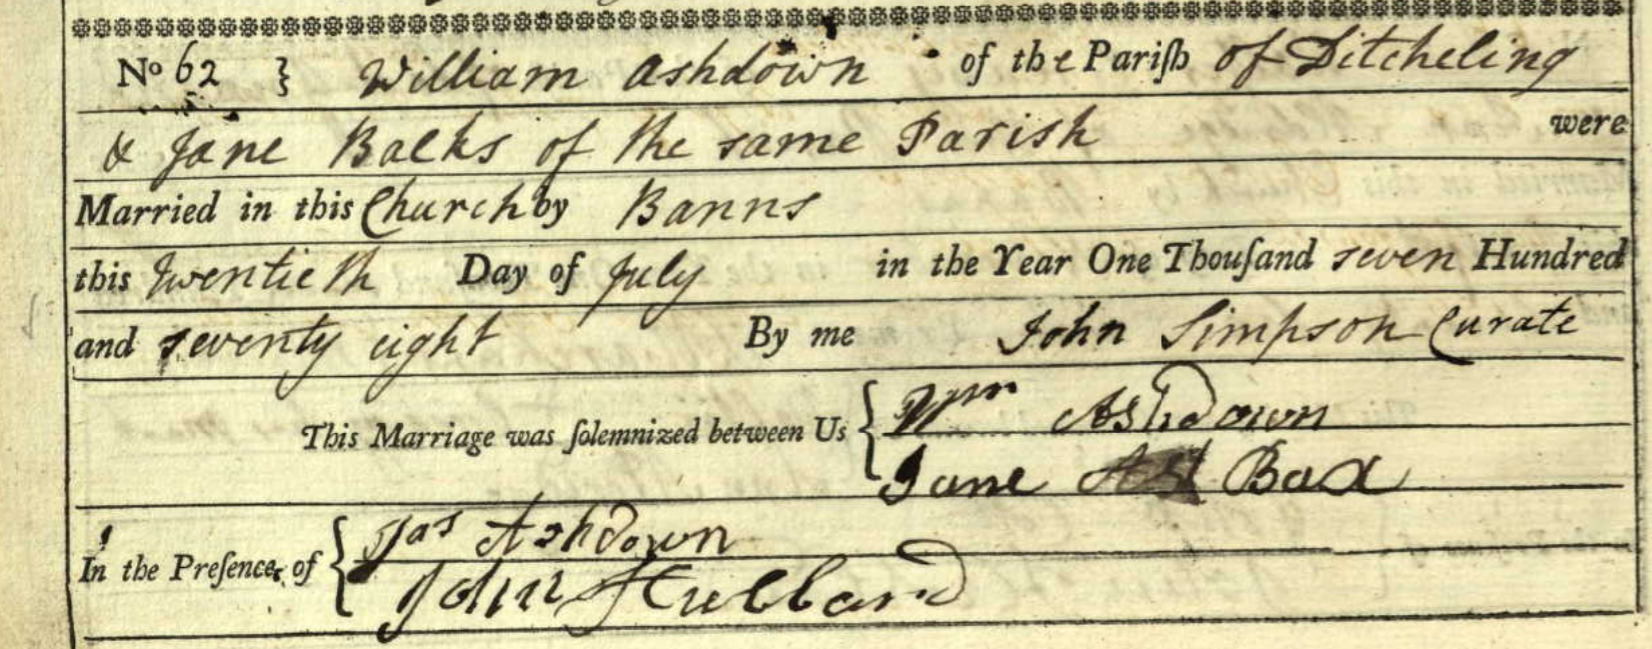 No 62 } William Ashdown of the Pariſh of Ditcheling
& Jane Backs of the same Parish were
Married in this Church by Banns
this twentieth Day of July in the Year One Thouſand seven Hundred
and seventy eight By me John Simpson Curate
This Marriage was ſolemnized between Us { Wm Ashdown
Jane Bax
In the Preſence of { Jas Ashdown
John Hubbard